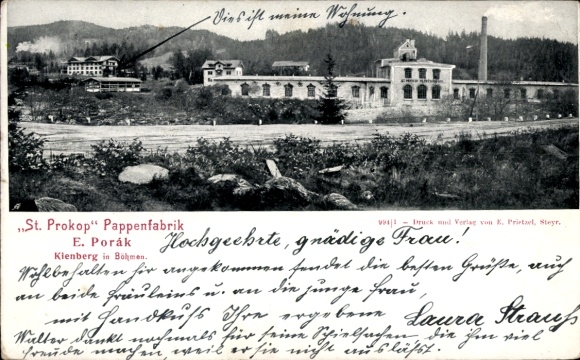 Dies ist meine Wohnung.
„St. Prokop" Pappenfabrik
E. Porák
Kienberg in Böhmen.
994|1 – Druck und Verlag von E. Prietzel, Steyr.
Hochgeehrte, gnädige Frau!
Wohlbehalten hir angekommen sendet die besten Grüße, auch
an beide Fräuleins u. an die junge Frau,
mit Handkuß Ihre ergebene Laura Strauß
Walter dankt nochmals für seine Spielsachen die ihm viel
Freude machen, weil er sie nicht ausläßt.